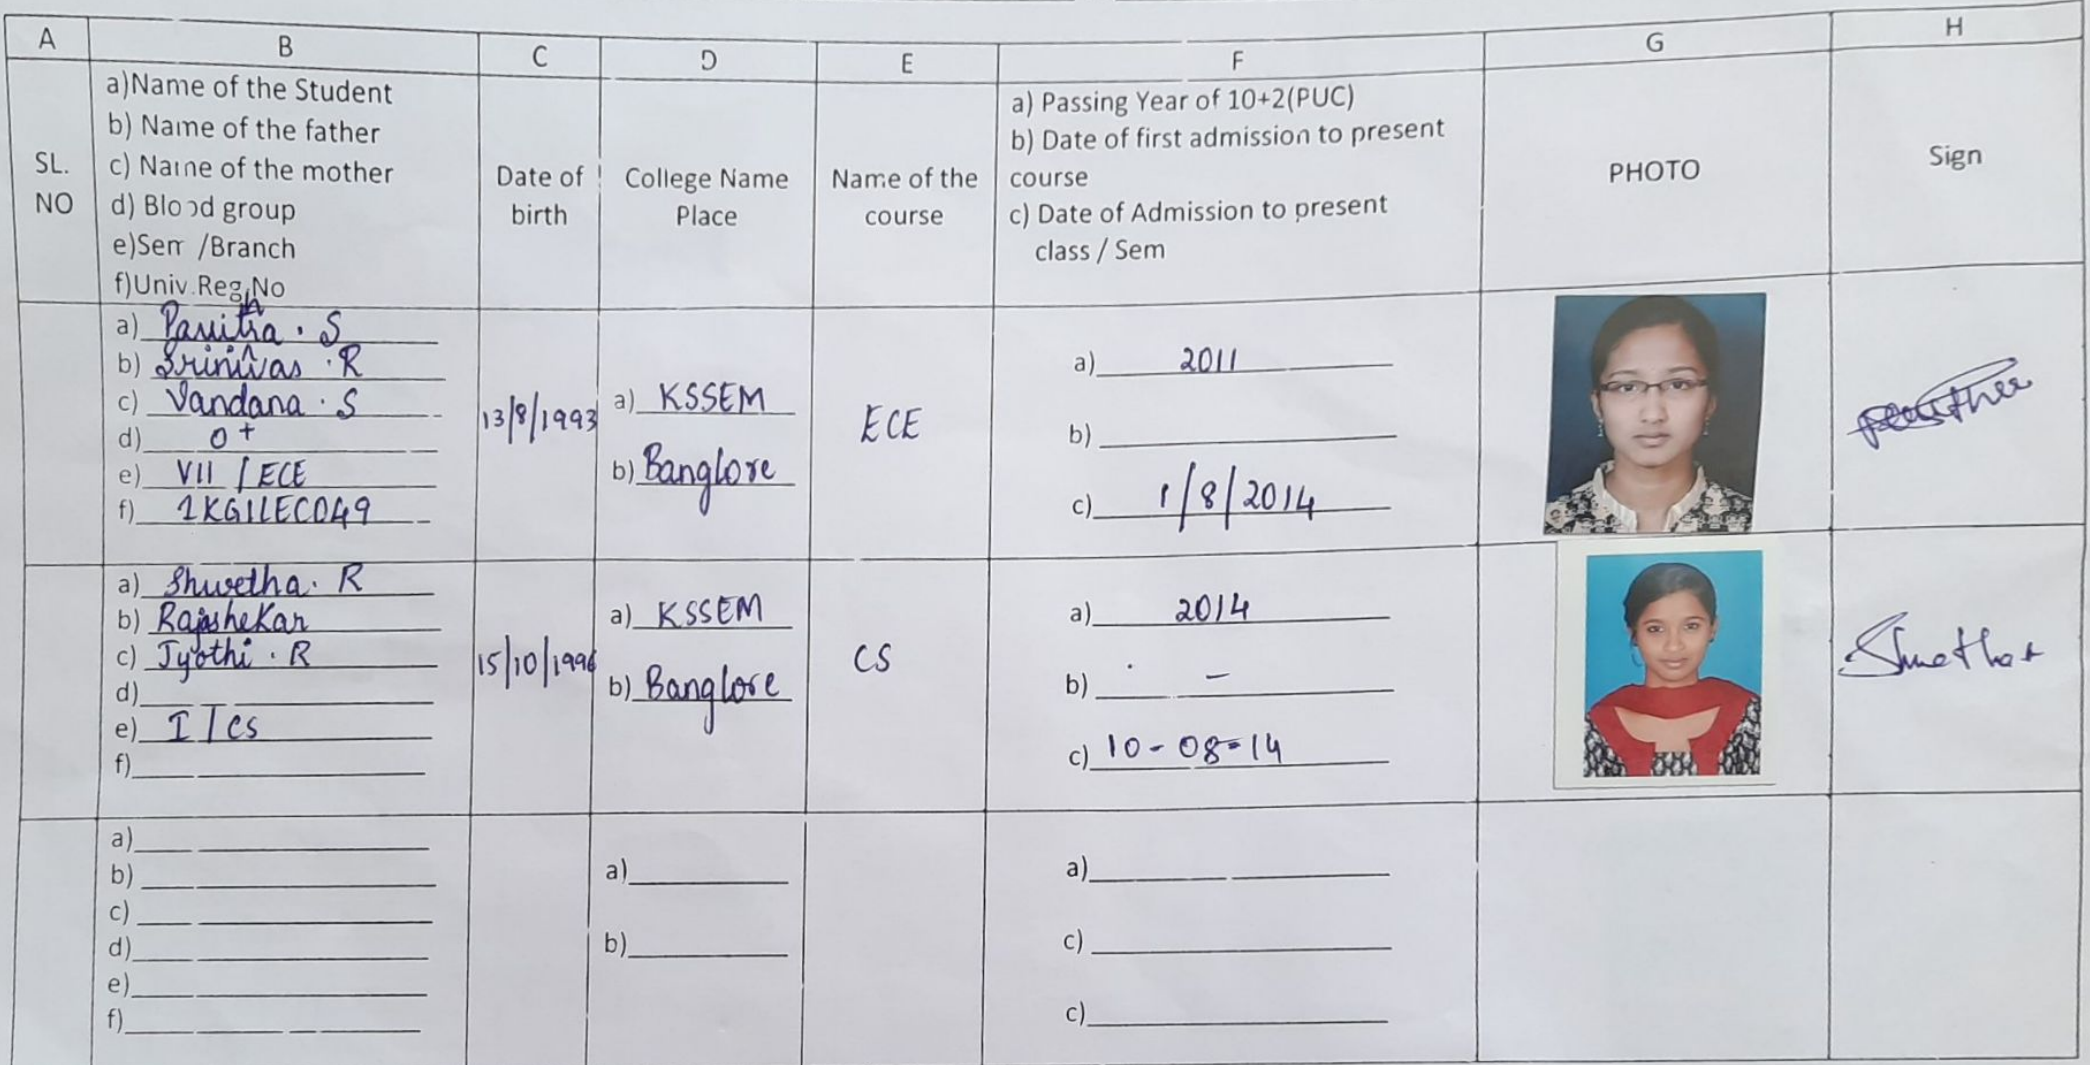 A
B
C
D
E
F
G
H
SL.
NO
a)Name of the Student
b) Name of the father
c) Name of the mother
d) Blood group
e)Sem /Branch
f)Univ.Reg.No
Date of
birth
College Name
Place
Name of the
course
a) Passing Year of 10+2(PUC)
b) Date of first admission to present
course
c) Date of Admission to present
class / Sem
PHOTO
Sign
a) Pavithra . S
b) Srinivas . R
c) Vandana . S
d) O+
e) VII / ECE
f) 1KG11EC049
13/8/1993
a) KSSEM
b) Banglore
ECE
a) 2011
b)
c) 1/8/2014
a) Shwetha . R
b) Rajashekar
c) Jyothi . R
d)
e) I / CS
f)
15/10/1996
a) KSSEM
b) Banglore
CS
a) 2014
b) -
c) 10-08-14
Shwetha
a)
b)
c)
d)
e)
f)
a)
b)
a)
c)
c)